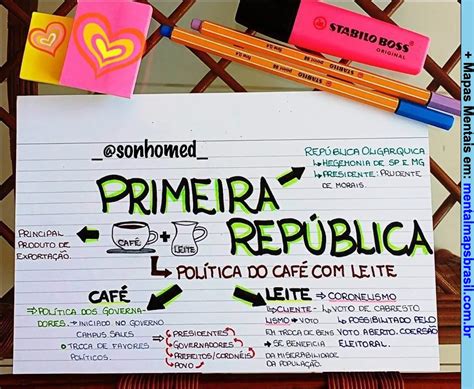 STABILO BOSS
ORIGINAL
+ Mapas Mentais em: mentalmapsbrasil.com.br
_@sonhomed_
REPÚBLICA OLIGARQUICA
↳ HEGEMONIA DE SP E MG
↳ PRESIDENTE: PRUDENTE
DE MORAIS.
PRIMEIRA
REPÚBLICA
PRINCIPAL
PRODUTO DE
EXPORTAÇÃO.
CAFÉ + LEITE
↳ POLÍTICA DO CAFÉ COM LEITE
CAFÉ
⇒ POLÍTICA DOS GOVERNA-
DORES. → INICIADO NO GOVERNO
CAMPUS SALES
TROCA DE FAVORES
POLÍTICOS.
→ PRESIDENTES
GOVERNADORES
PREFEITOS/CORONÉIS
POVO
LEITE ⇒ CORONELISMO
↳ CLIENTE-
LISMO → VOTO
EM TROCA DE BENS
→ SE BENEFICIA
DA MISERABILIDADE
DA POPULAÇÃO.
↳ VOTO DE CABRESTO
↳ POSSIBILITADO PELO
VOTO ABERTO. COERSÃO
ELEITORAL.